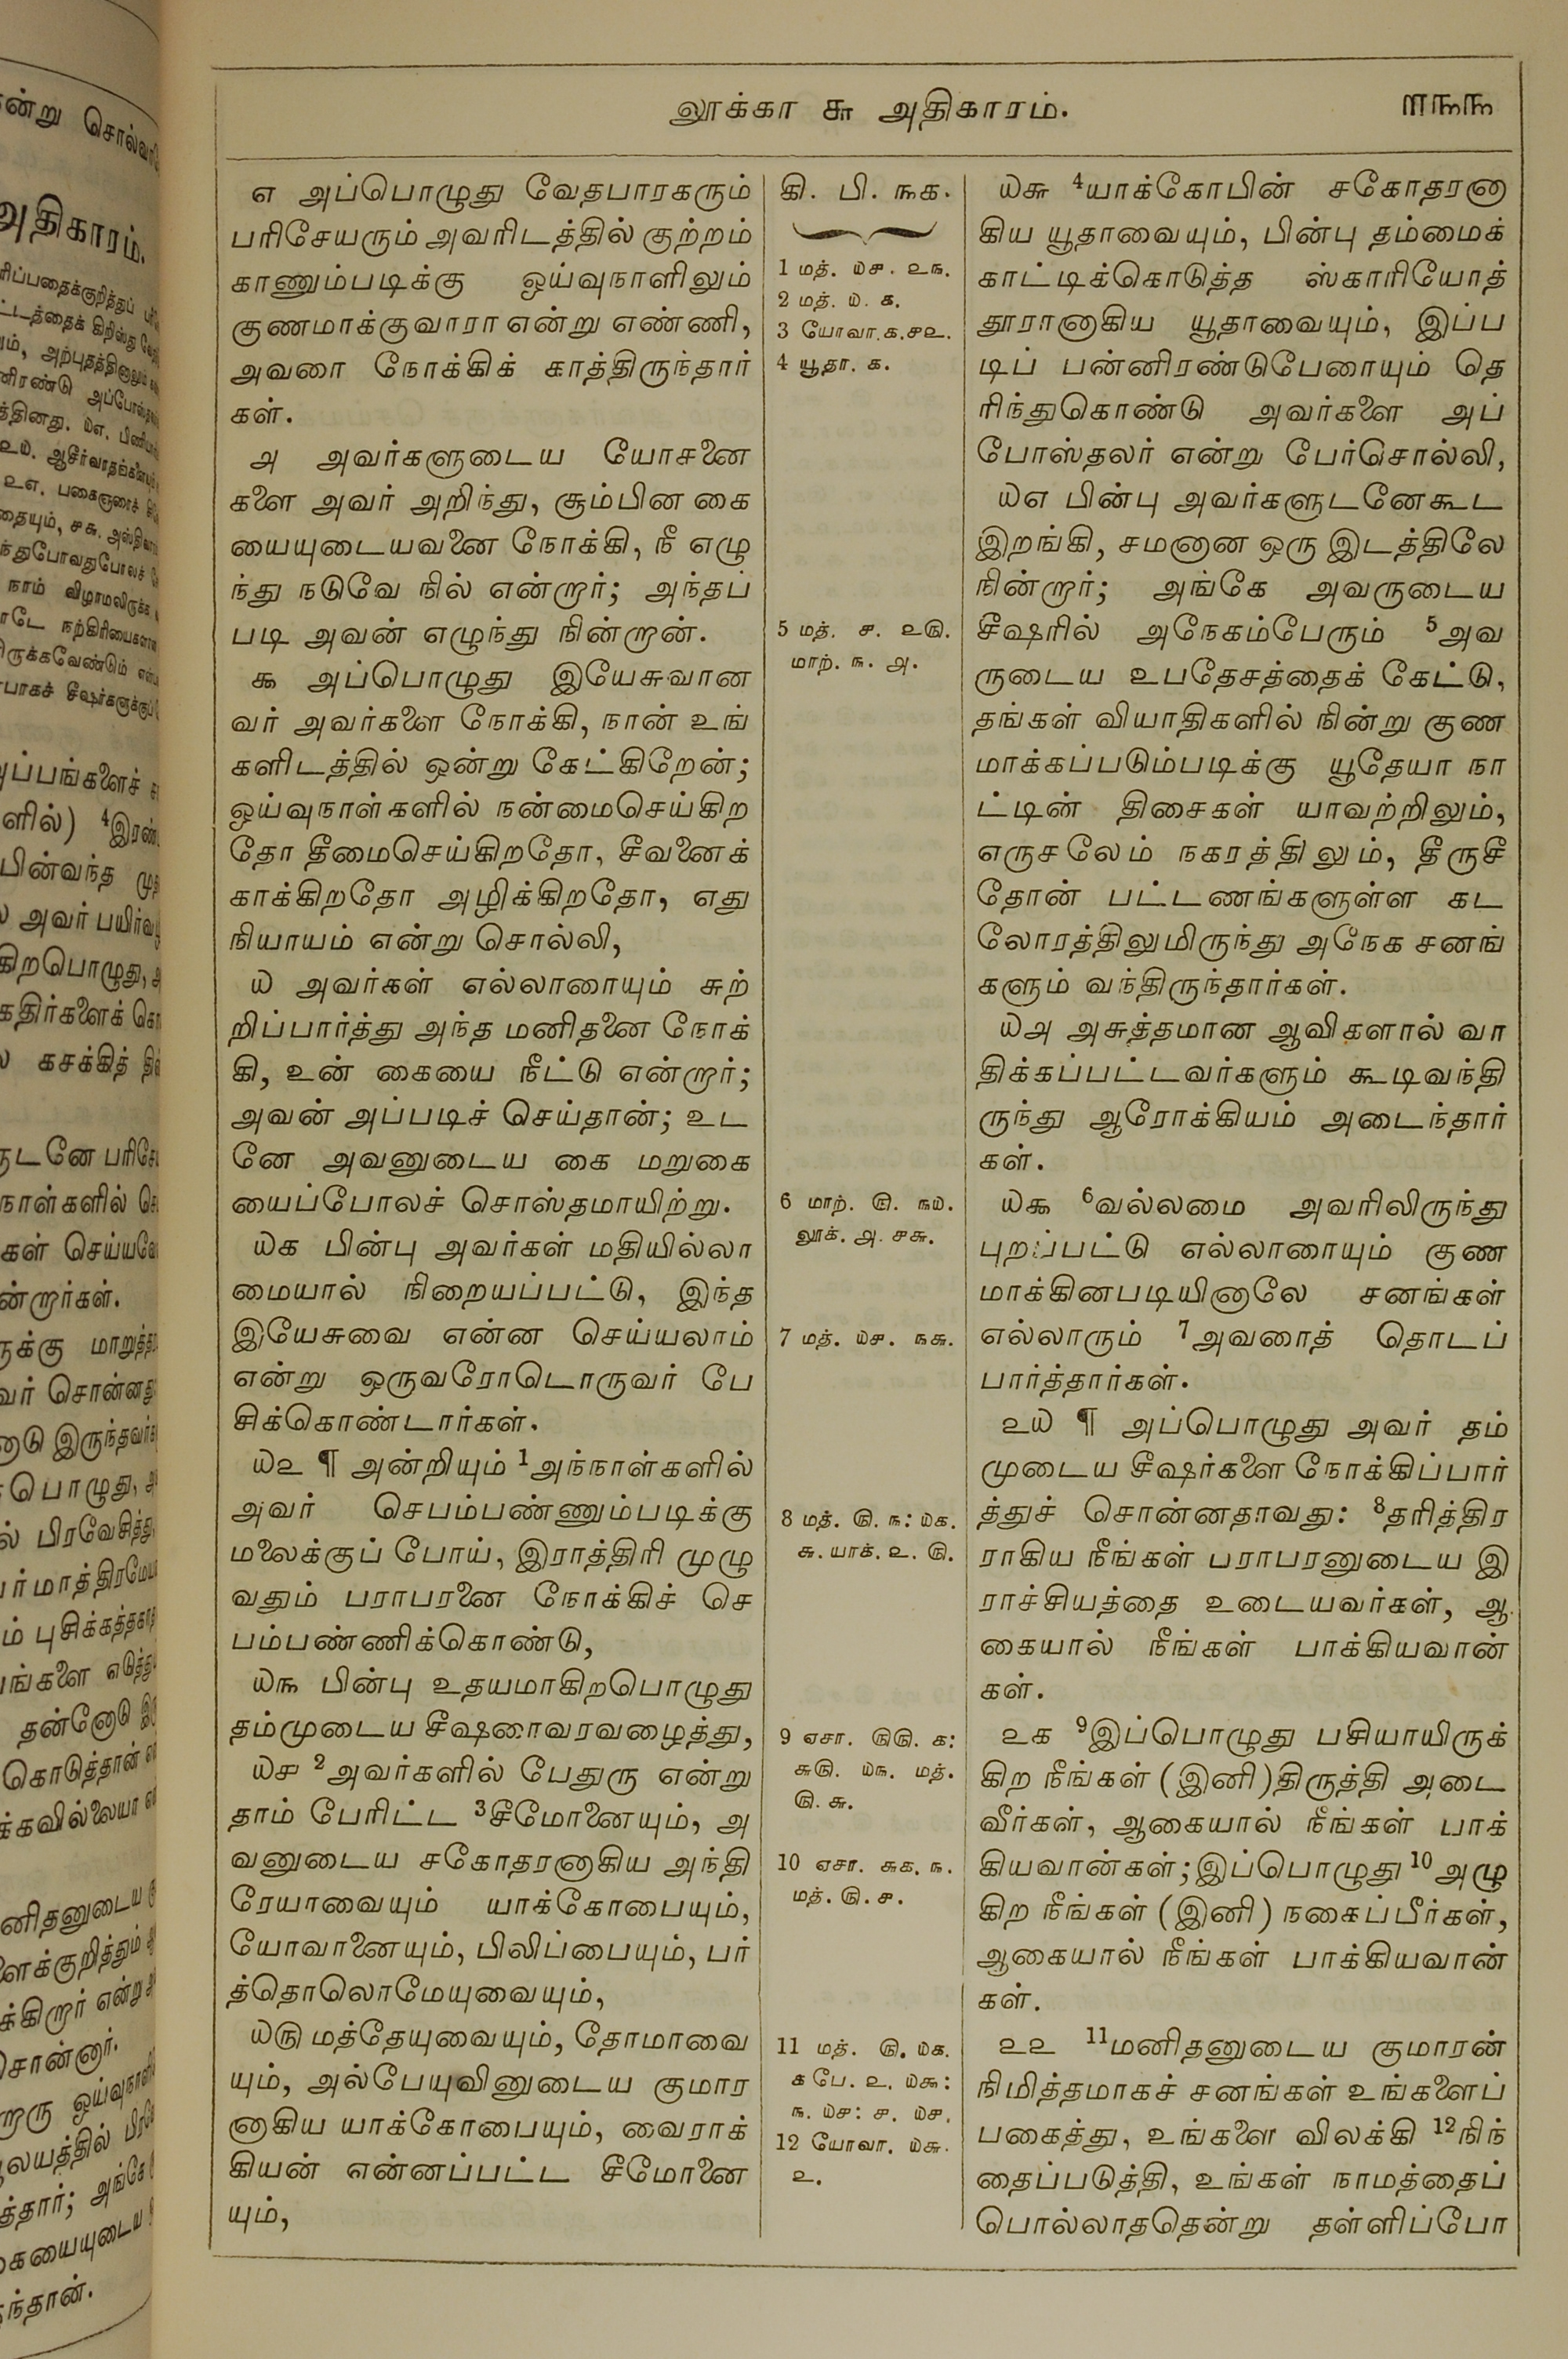 லூக்கா ௬ அதிகாரம்.
௱௩௩
௭ அப்பொழுது வேதபாரகரும்
பரிசேயரும் அவரிடத்தில் குற்றம்
காணும்படிக்கு ஓய்வுநாளிலும்
குணமாக்குவாரா என்று எண்ணி,
அவரை நோக்கிக் காத்திருந்தார்
கள்.
௮ அவர்களுடைய யோசனை
களை அவர் அறிந்து, சூம்பின கை
யையுடையவனை நோக்கி, நீ எழு
ந்து நடுவே நில் என்றார்; அந்தப்
படி அவன் எழுந்து நின்றான்.
௯ அப்பொழுது இயேசுவான
வர் அவர்களை நோக்கி, நான் உங்
களிடத்தில் ஒன்று கேட்கிறேன்;
ஓய்வுநாள்களில் நன்மைசெய்கிற
தோ தீமைசெய்கிறதோ, சீவனைக்
காக்கிறதோ அழிக்கிறதோ, எது
நியாயம் என்று சொல்லி,
௰ அவர்கள் எல்லாரையும் சுற்
றிப்பார்த்து அந்த மனிதனை நோக்
கி, உன் கையை நீட்டு என்றார்;
அவன் அப்படிச் செய்தான்; உட
னே அவனுடைய கை மறுகை
யைப்போலச் சொஸ்தமாயிற்று.
௰௧ பின்பு அவர்கள் மதியில்லா
மையால் நிறையப்பட்டு, இந்த
இயேசுவை என்ன செய்யலாம்
என்று ஒருவரோடொருவர் பே
சிக்கொண்டார்கள்.
௰௨ ¶ அன்றியும் 1அந்நாள்களில்
அவர் செபம்பண்ணும்படிக்கு
மலைக்குப் போய், இராத்திரி முழு
வதும் பராபரனை நோக்கிச் செ
பம்பண்ணிக்கொண்டு,
௰௩ பின்பு உதயமாகிறபொழுது
தம்முடைய சீஷரைவரவழைத்து,
௰௪ 2அவர்களில் பேதுரு என்று
தாம் பேரிட்ட 3சீமோனையும், அ
வனுடைய சகோதரனாகிய அந்தி
ரேயாவையும் யாக்கோபையும்,
யோவானையும், பிலிப்பையும், பர்
த்தொலொமேயுவையும்,
௰௫ மத்தேயுவையும், தோமாவை
யும், அல்பேயுவினுடைய குமார
னாகிய யாக்கோபையும், வைராக்
கியன் என்னப்பட்ட சீமோனை
யும்,
கி. பி. ௩௧.
1 மத். ௰௪. ௨௩.
2 மத். ௰. ௧.
3 யோவா.௧.௪௨.
4 யூதா. ௧.
5 மத். ௪. ௨௫.
மாற். ௩. ௮.
6 மாற். ௫. ௩௰.
லூக். ௮. ௪௬.
7 மத். ௰௪. ௩௬.
8 மத். ௫. ௩: ௰௧.
௬. யாக். ௨. ௫.
9 ஏசா. ௫௫. ௧:
௬௫. ௰௩. மத்.
௫. ௬.
10 ஏசா. ௬௧. ௩.
மத். ௫. ௪.
11 மத். ௫. ௰௧.
௧ பே. ௨. ௰௯:
௩. ௰௪: ௪. ௰௪.
12 யோவா. ௰௬.
௨.
௰௬ 4யாக்கோபின் சகோதரனா
கிய யூதாவையும், பின்பு தம்மைக்
காட்டிக்கொடுத்த ஸ்காரியோத்
தூரானாகிய யூதாவையும், இப்ப
டிப் பன்னிரண்டுபேரையும் தெ
ரிந்துகொண்டு அவர்களை அப்
போஸ்தலர் என்று பேர்சொல்லி,
௰௭ பின்பு அவர்களுடனேகூட
இறங்கி, சமனான ஒரு இடத்திலே
நின்றார்; அங்கே அவருடைய
சீஷரில் அநேகம்பேரும் 5அவ
ருடைய உபதேசத்தைக் கேட்டு,
தங்கள் வியாதிகளில் நின்று குண
மாக்கப்படும்படிக்கு யூதேயா நா
ட்டின் திசைகள் யாவற்றிலும்,
எருசலேம் நகரத்திலும், தீருசீ
தோன் பட்டணங்களுள்ள கட
லோரத்திலுமிருந்து அநேக சனங்
களும் வந்திருந்தார்கள்.
௰௮ அசுத்தமான ஆவிகளால் வா
திக்கப்பட்டவர்களும் கூடிவந்தி
ருந்து ஆரோக்கியம் அடைந்தார்
கள்.
௰௯ 6வல்லமை அவரிலிருந்து
புறப்பட்டு எல்லாரையும் குண
மாக்கினபடியினாலே சனங்கள்
எல்லாரும் 7அவரைத் தொடப்
பார்த்தார்கள்.
௨௰ ¶ அப்பொழுது அவர் தம்
முடைய சீஷர்களை நோக்கிப்பார்
த்துச் சொன்னதாவது: 8தரித்திர
ராகிய நீங்கள் பராபரனுடைய இ
ராச்சியத்தை உடையவர்கள், ஆ
கையால் நீங்கள் பாக்கியவான்
கள்.
௨௧ 9இப்பொழுது பசியாயிருக்
கிற நீங்கள் (இனி)திருத்தி அடை
வீர்கள், ஆகையால் நீங்கள் பாக்
கியவான்கள்;இப்பொழுது 10அழு
கிற நீங்கள் (இனி) நகைப்பீர்கள்,
ஆகையால் நீங்கள் பாக்கியவான்
கள்.
௨௨ 11மனிதனுடைய குமாரன்
நிமித்தமாகச் சனங்கள் உங்களைப்
பகைத்து, உங்களை விலக்கி 12நிந்
தைப்படுத்தி, உங்கள் நாமத்தைப்
பொல்லாததென்று தள்ளிப்போ